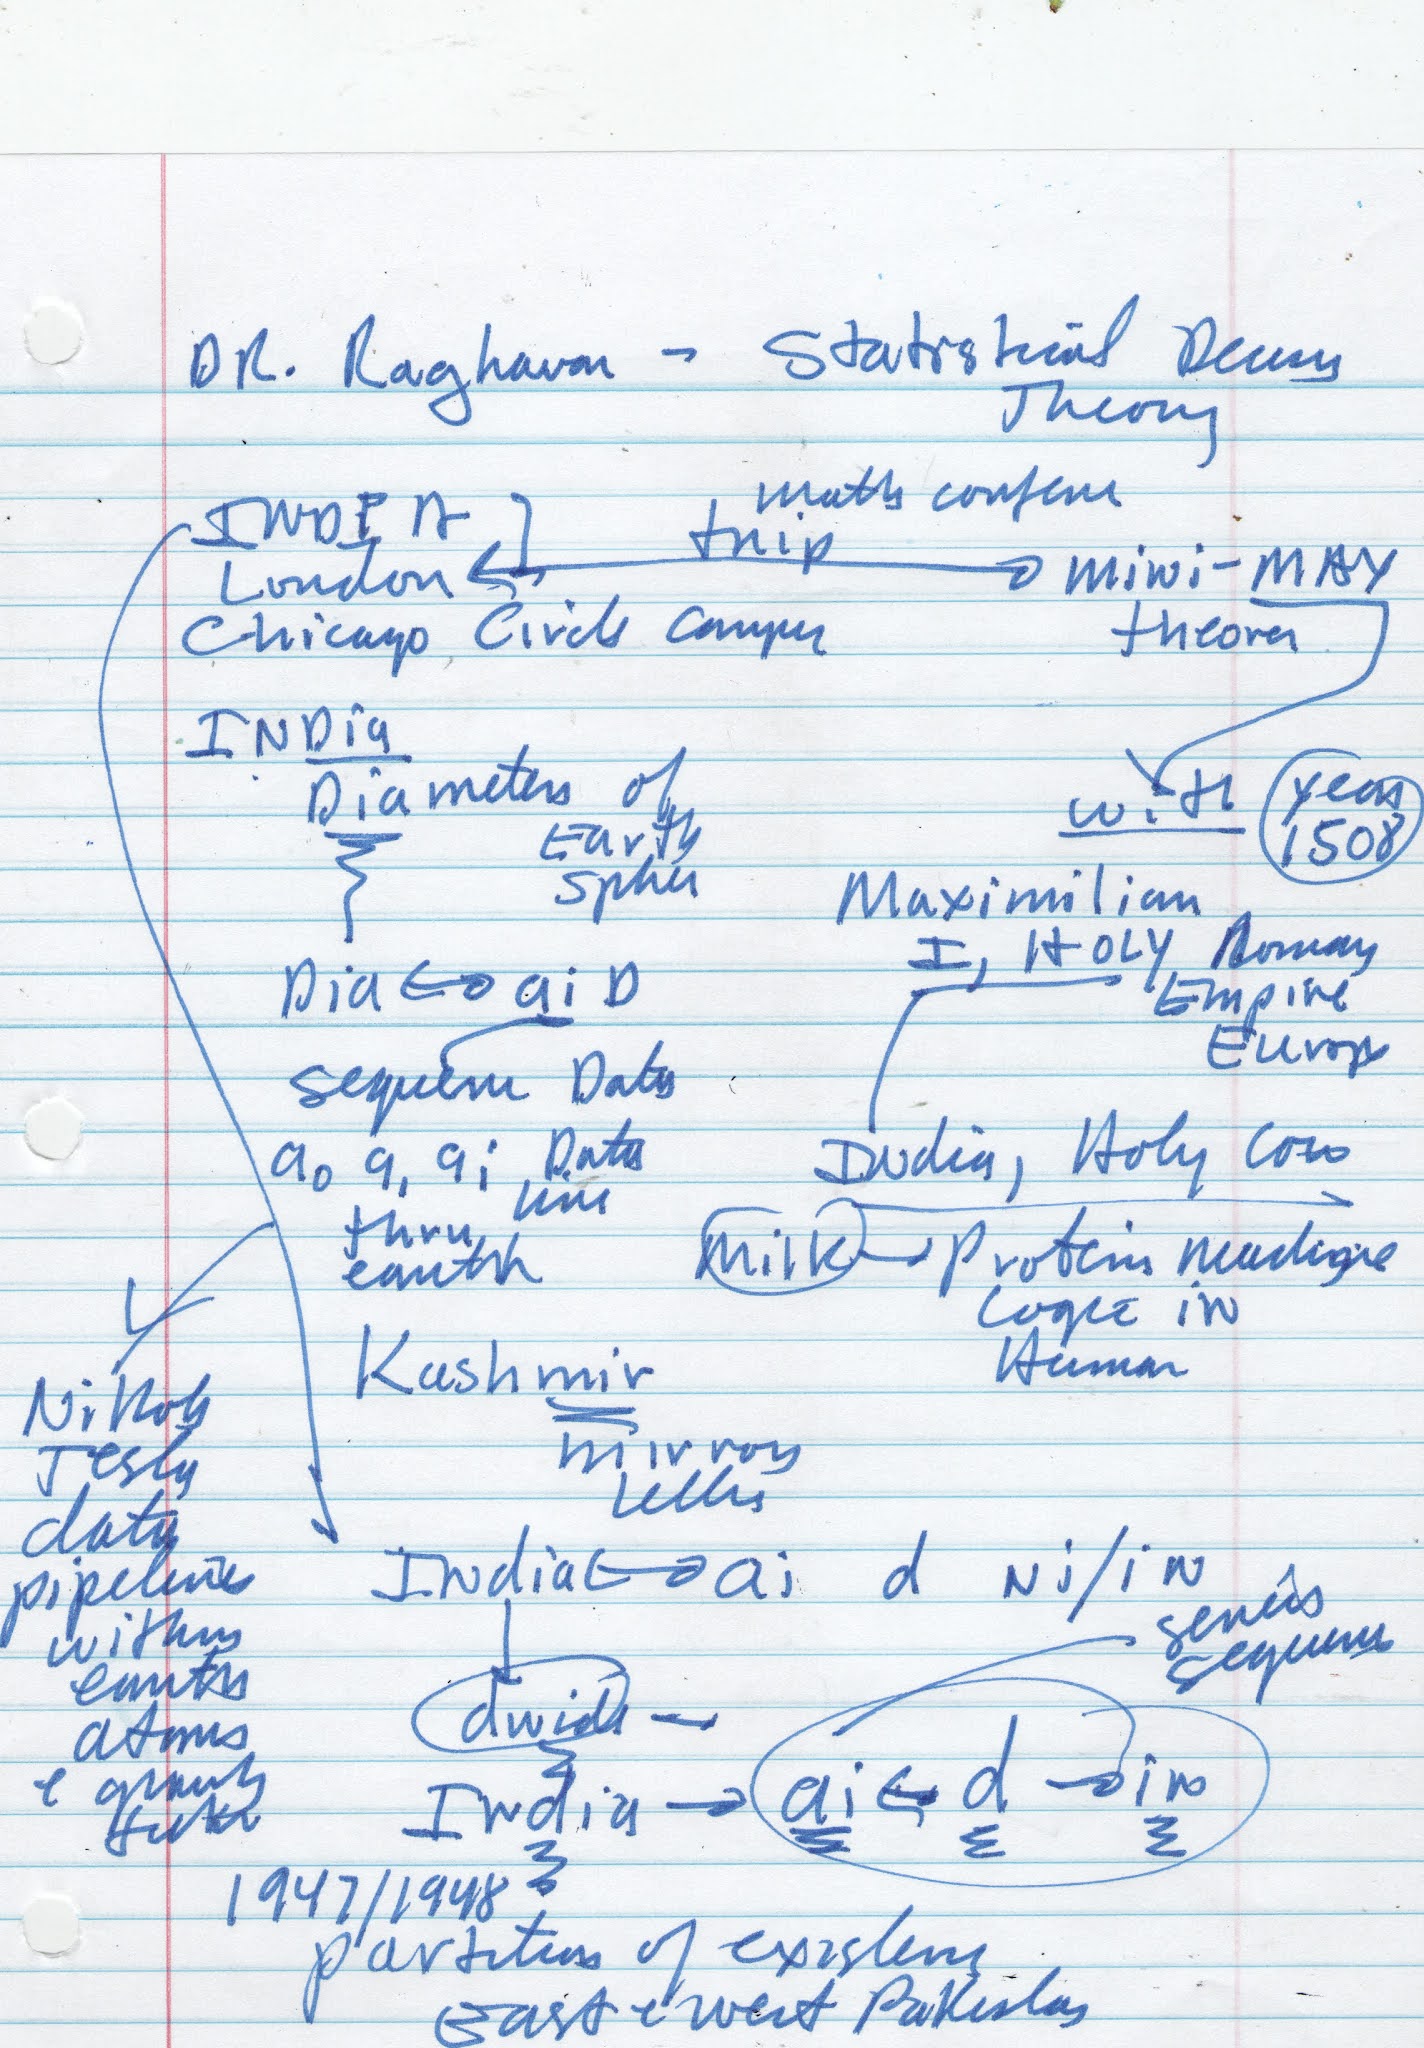 DR. Raghavan - Statistical
Theory
INDIA
maths
trip
London
mini-MAX
Chicago Circle
INDia
Diameters of
Earth
with
years
1508
Maximilian
I, HOLY Roman
Empire
Europe
Dia ↔ aiD
Data
India, Holy Cow
a0 a1 ai Data
line
thru
earth
milk → Protein
Logic in
Human
Kashmir
mirror
Nikola
Tesla
data
pipeline
within
earth
atoms
India ↔ ai d Ni/in
series
sequence
divide -
India → ai ↔ d → in
1947/1948
partition of
East & West Pakistan